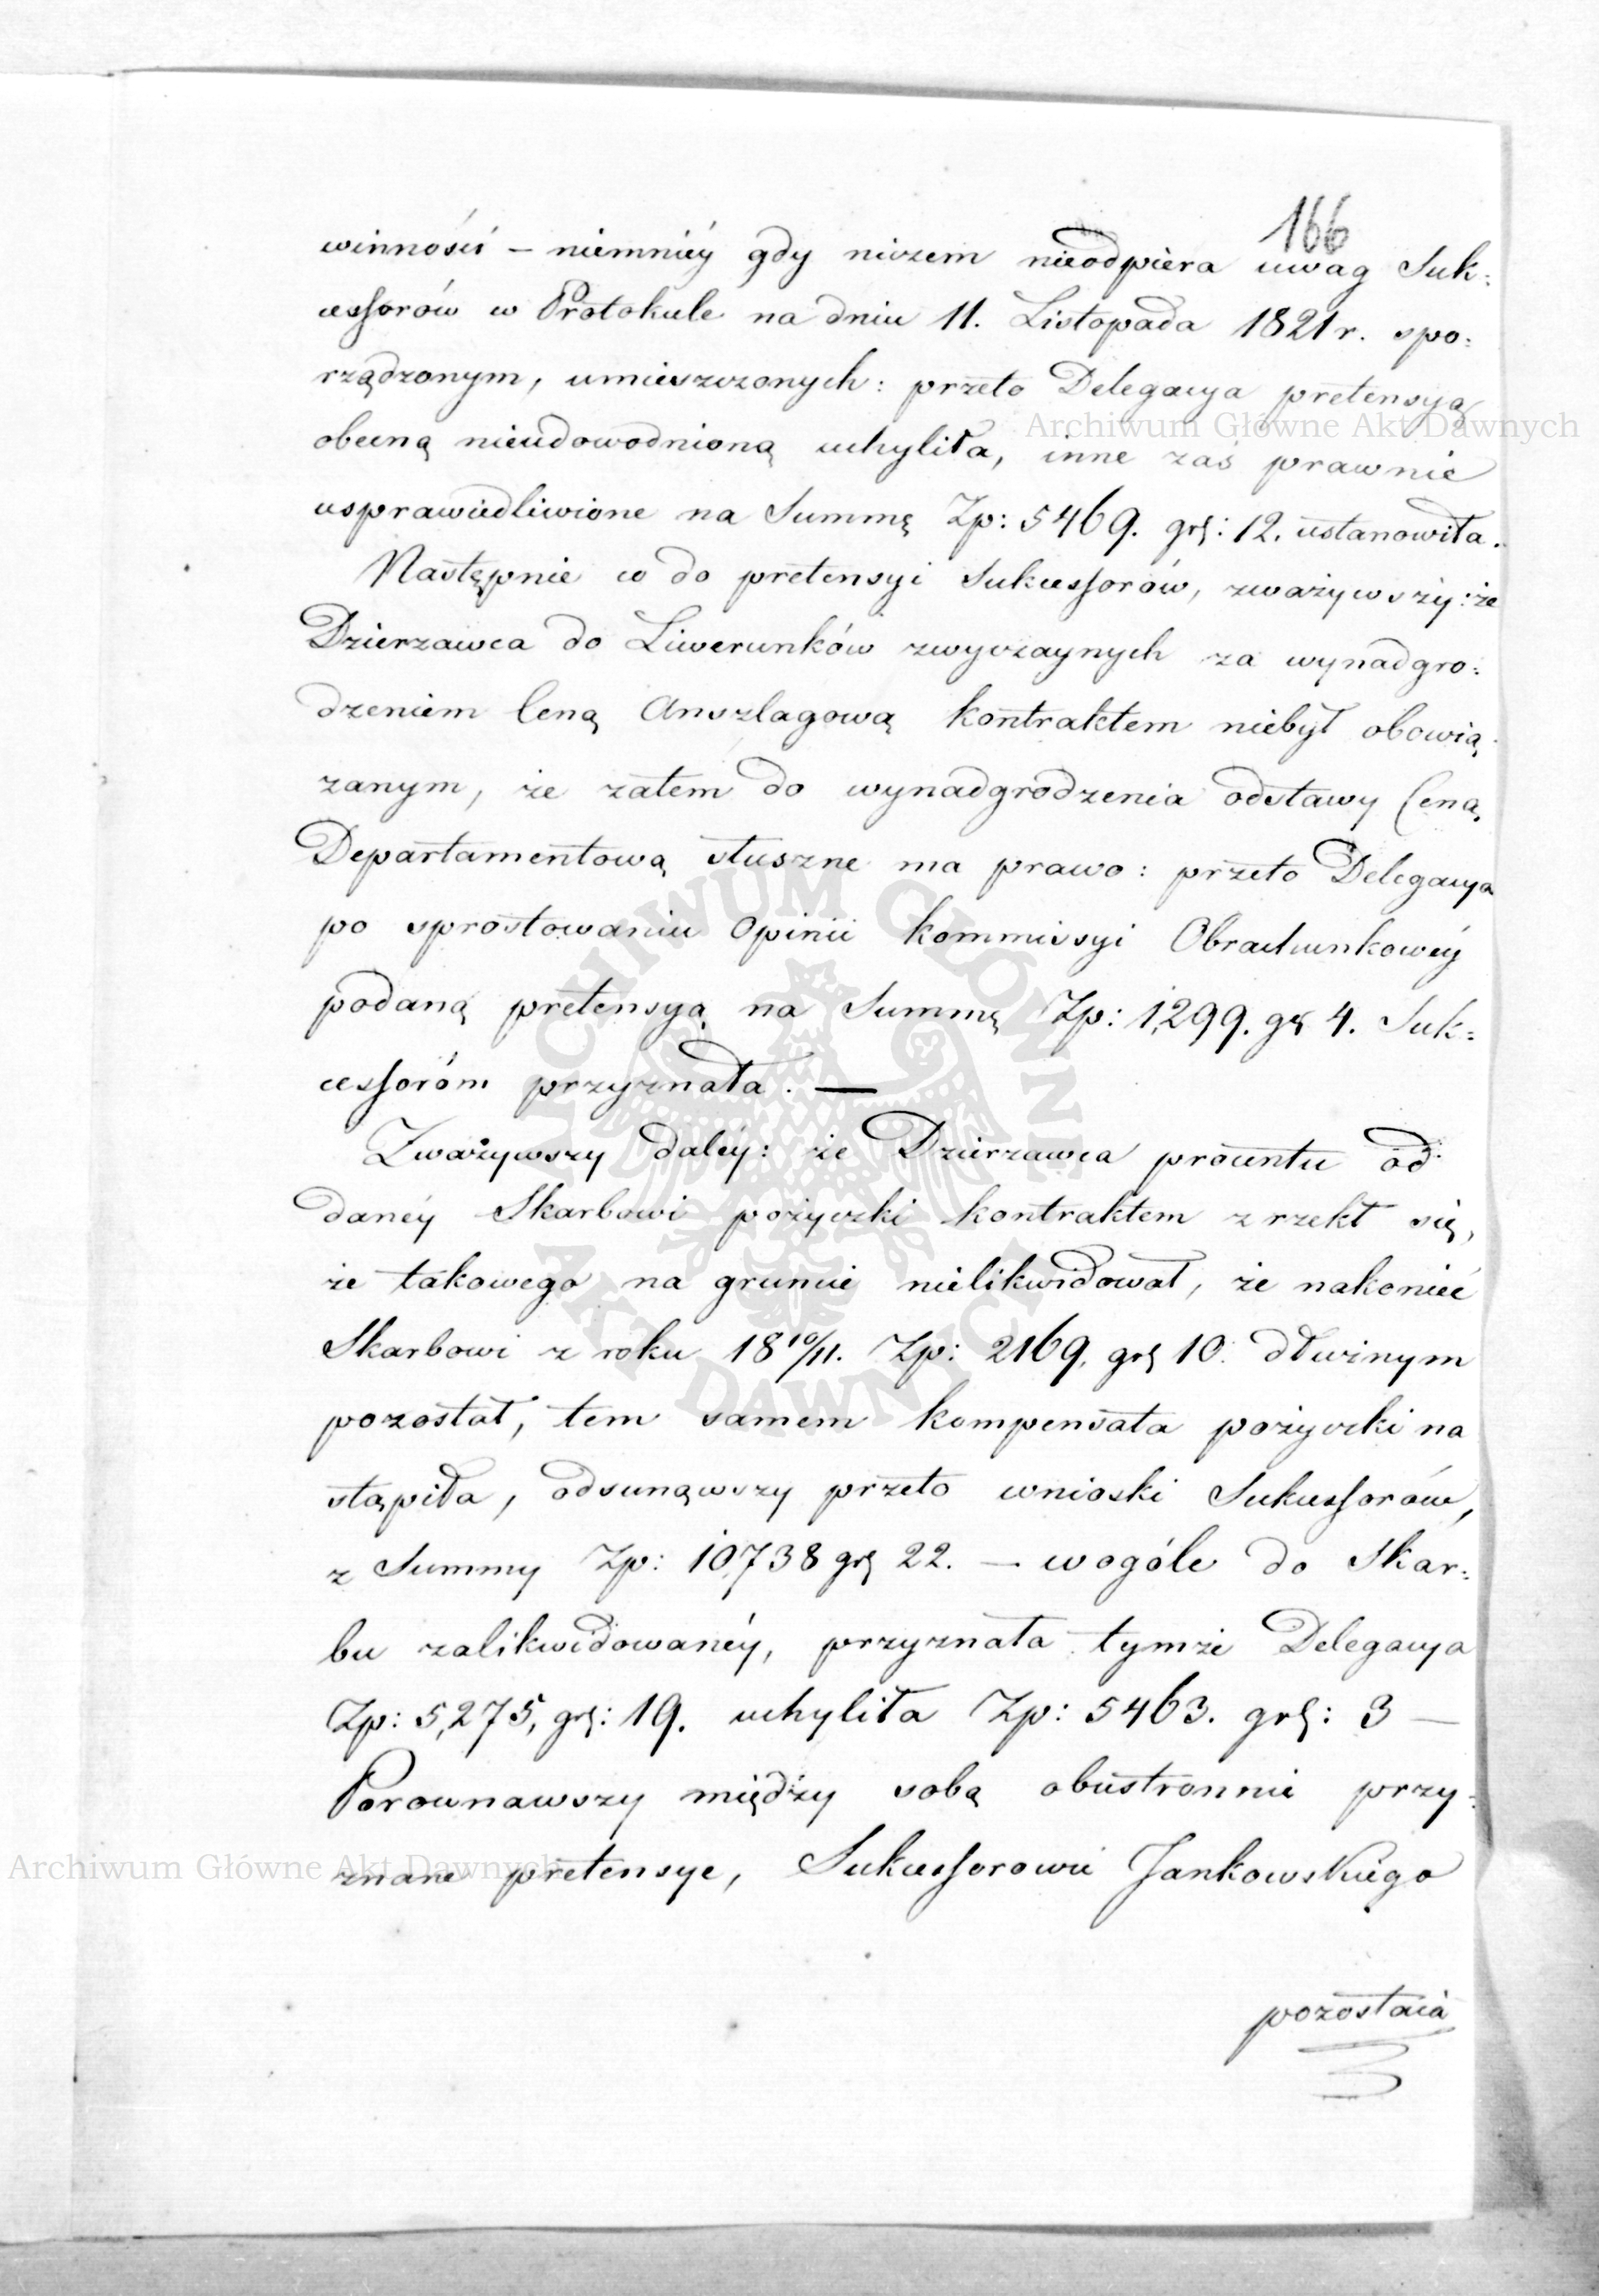 166
winności – niemniéy gdy niczem nieodpiera uwag Suk:
cessorów w Protokule na dniu 11. Listopada 1821 r. spo:
rządzonym, umieszczonych: przeto Delegacya pretensyą
obecną nieudowodnioną uchyliła, inne zaś prawnie
usprawiedliwione na Summę Zp: 5469. grs: 12. ustanowiła.
Następnie co do pretensyi Sukcessorów, zważywszy: że
Dzierzawca do Liwerunków zwyczaynych za wynadgro:
dzeniem Ceną Anszlagową kontraktem niebył obowią
zanym, że zatem do wynadgrodzenia odstawy Ceną
Departamentową słuszne ma prawo: przeto Delegacya
po sprostowaniu Opinii kommissyi Obrachunkowéy
podaną pretensyą na Summę Zp: 1,299. gr 4. Suk:
cessoróm przyznała. —
Zważywszy daléy: że Dzierzawca procentu od
danéy Skarbowi pożyczki kontraktem zrzekł się,
że takowego na gruncie nielikwidował, że nakoniec
Skarbowi z roku 18 10/11. Zp: 2169. grs 10. dłużnym
pozostał, tem samem kompensata pożyczki na
stąpiła, odsunąwszy przeto wnioski Sukcessorów,
z Summy Zp: 10,738 grs 22. — wogóle do Skar:
bu zalikwidowanéy, przyznała tymże Delegacya
Zp: 5,275, grs: 19. uchyliła Zp: 5463. grs: 3 —
Porownawszy między sobą obustronnie przy:
znane pretensye, Sukcessorowie Jankowskiego
pozostaią
Archiwum Główne Akt Dawnych
Archiwum Główne Akt Dawnych
ARCHIWUM GŁÓWNE
AKT DAWNYCH